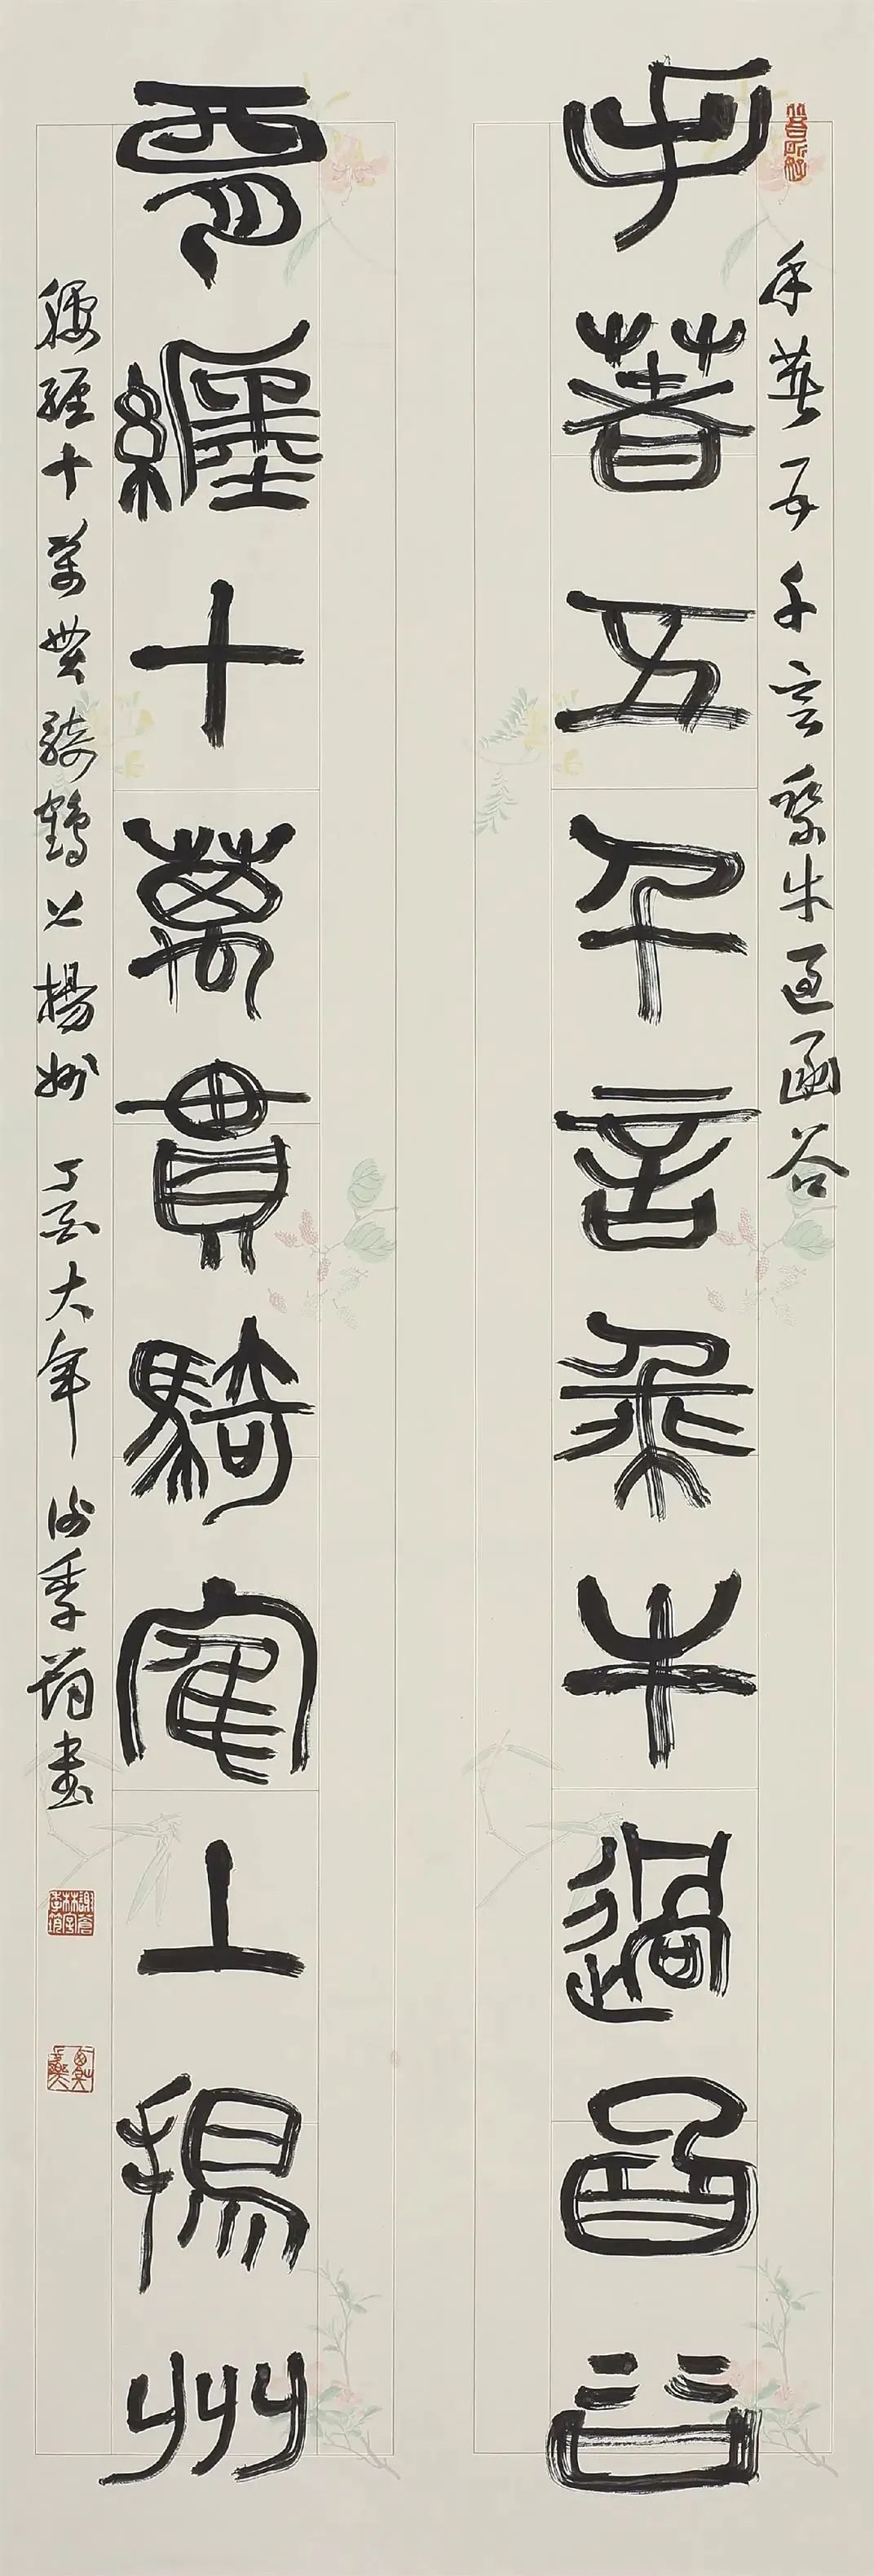 手著五千言乘牛過函谷
手著五千言乘牛過函谷
要纏十萬貫騎隺上揚州
腰纏十萬貫騎鶴上楊州 丁酉大年 謝季筠書